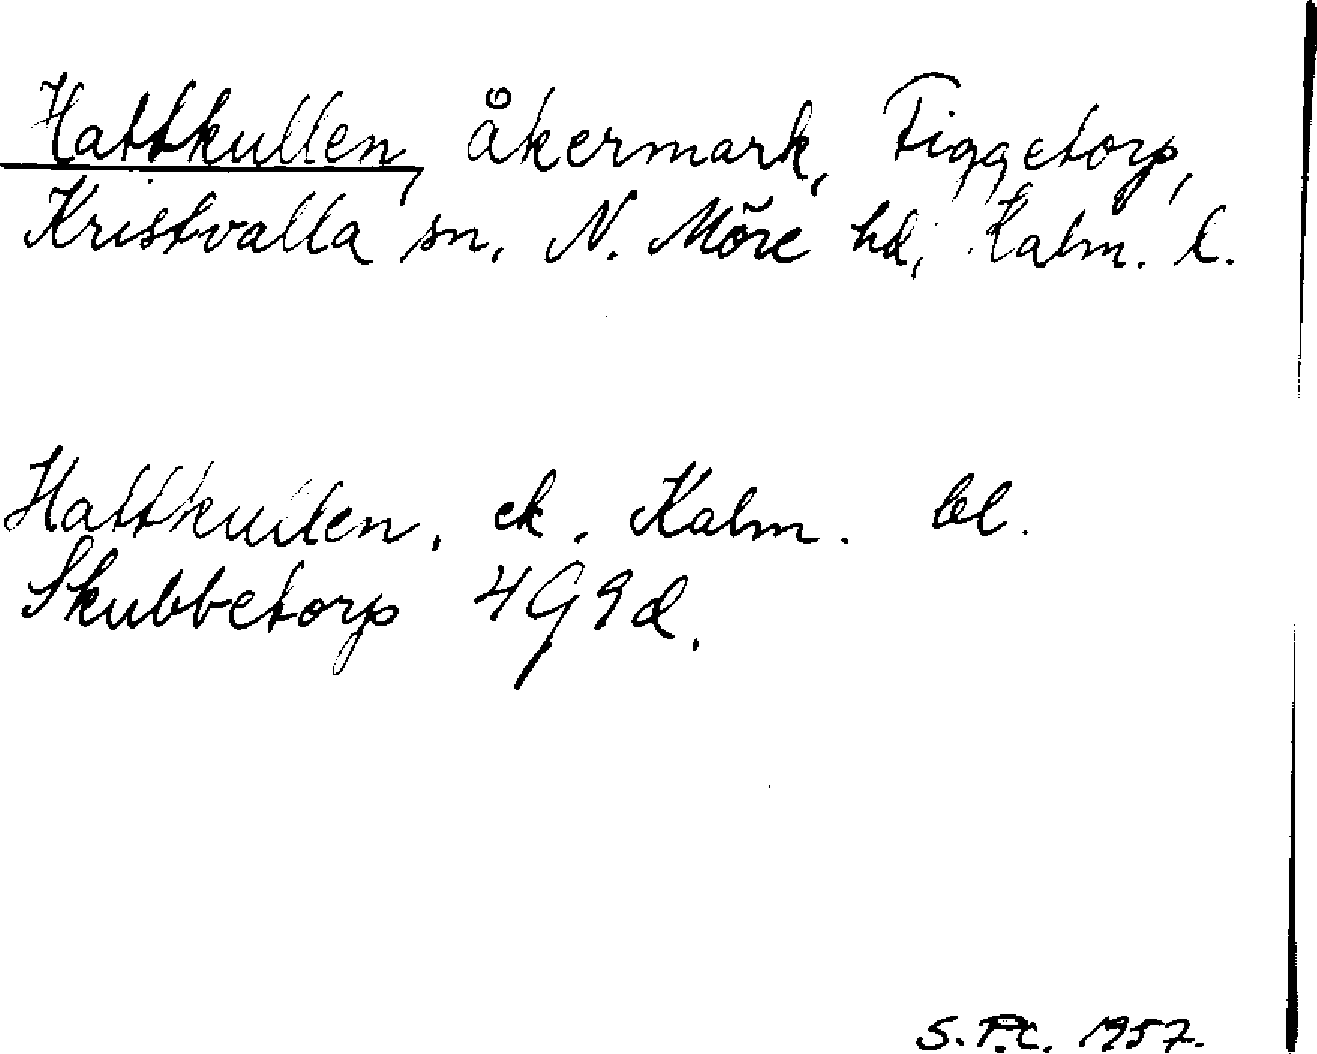 Hattkullen, åkermark, Tiggetorp,
Kristvalla sn, N. Möre hd, Kalm. l.
Hattkullen, ek. Kalm. bl.
Skubbetorp 4G9d.
S.P.C. 1957.